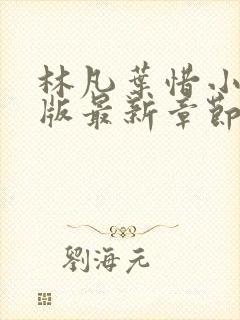 林凡葉惜小
版最新章節
劉海元